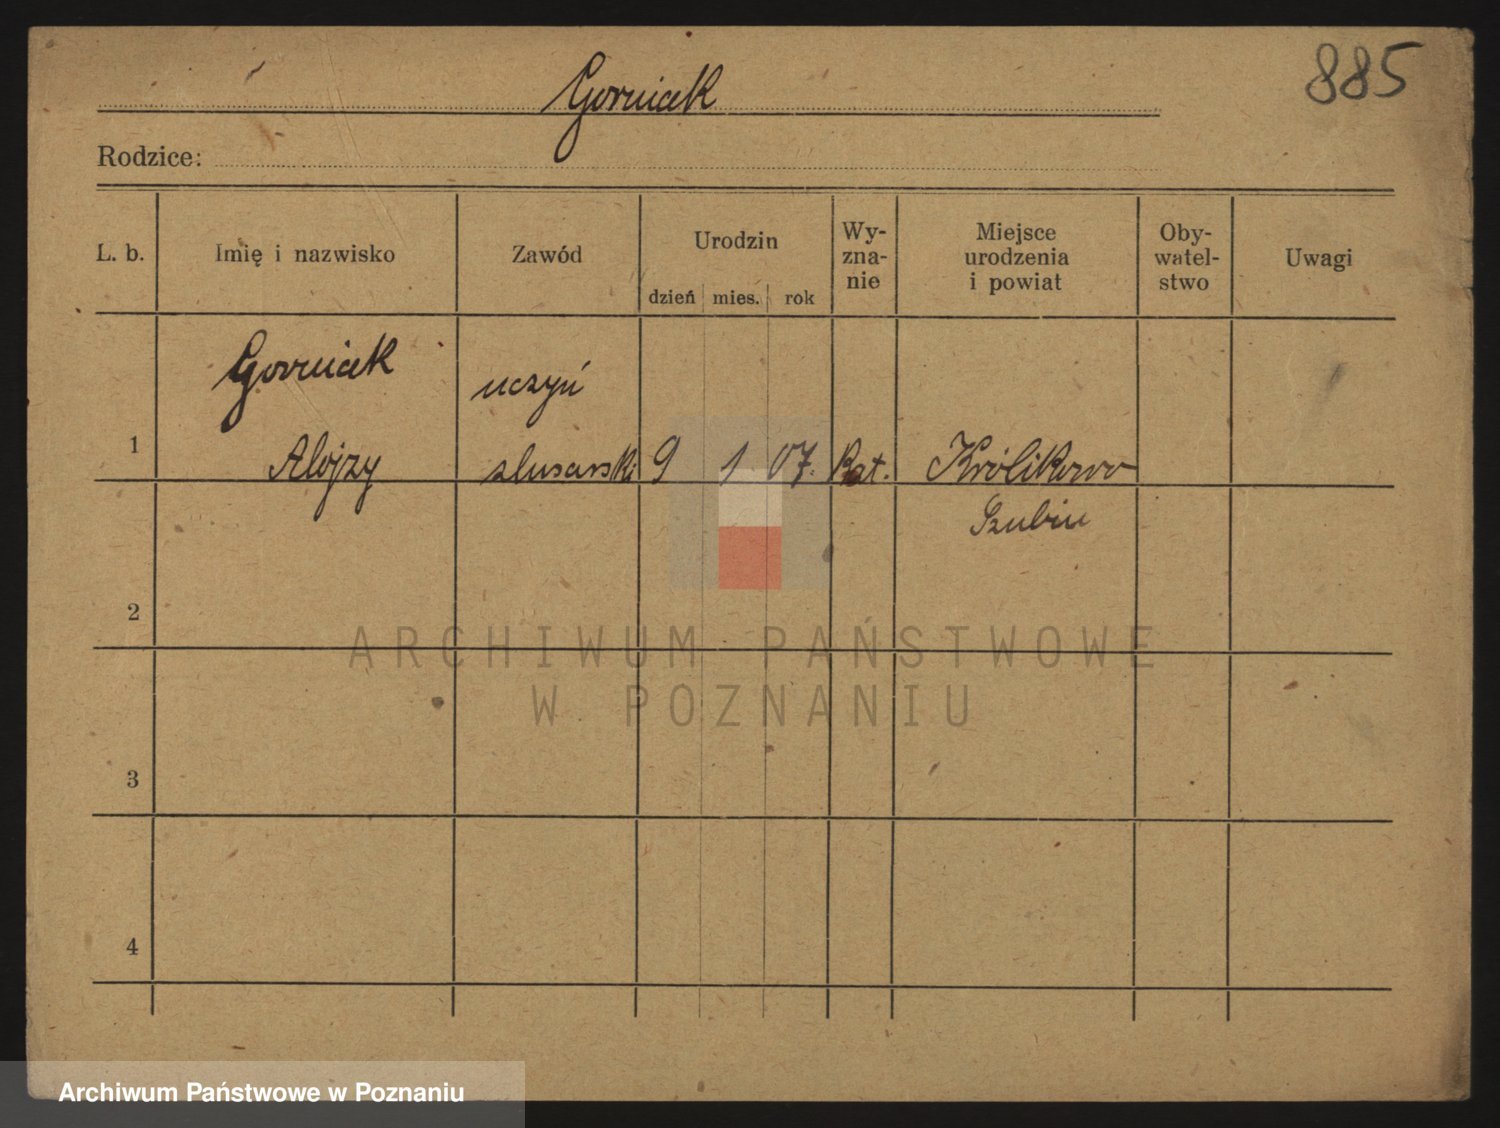 885
Gornicek
Rodzice:
L. b.
Imię i nazwisko
Zawód
Urodzin
dzień mies. rok
Wy-
zna-
nie
Miejsce
urodzenia
i powiat
Oby-
watel-
stwo
Uwagi
Gornicek
uczyń
1 Alojzy slusarski 9 1 07. Kat. Królikowo
Szubin
2
3
4
ARCHIWUM PAŃSTWOWE
W POZNANIU
Archiwum Państwowe w Poznaniu